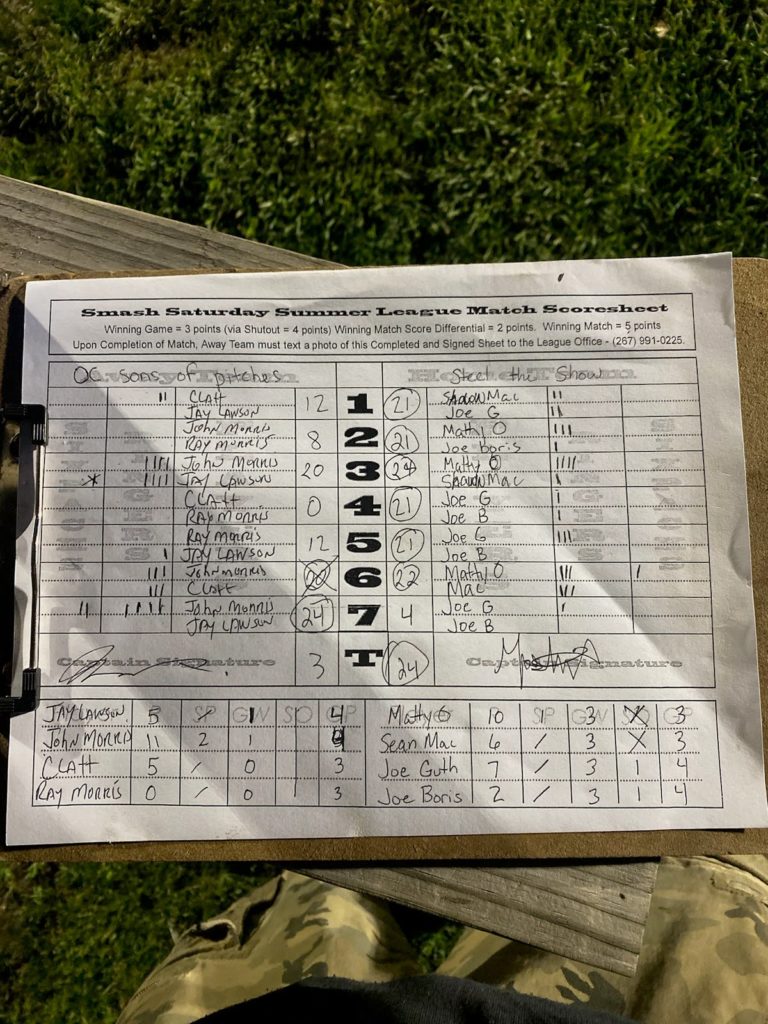 Smash Saturday Summer League Match Scoresheet
Winning Game = 3 points (via Shutout = 4 points) Winning Match Score Differential = 2 points. Winning Match = 5 points
Upon Completion of Match, Away Team must text a photo of this Completed and Signed Sheet to the League Office - (267) 991-0225.
OC sons of pitches Steel the Show
CLAtt 12 1 21 Shawn Mac
JAY LAWSON Joe G
John Morris 8 2 21 Matty O
RAY MORRIS Joe boris
John Morris 20 3 24 Matty O
JAY LAWSON Shawn Mac
CLAtt 0 4 21 Joe G
RAY MORRIS Joe B
RAY MORRIS 12 5 21 Joe G
JAY LAWSON Joe B
John Morris 20 6 22 Matty O
CLAtt Mac
John Morris 24 7 4 Joe G
JAY LAWSON Joe B
Captain Signature 3 T 24 Captain Signature
JAY LAWSON 5 / 1 4 Matty O 10 1 3 X 3
John MORRIS 11 2 1 4 Sean Mac 6 / 3 X 3
CLAtt 5 / 0 3 Joe Guth 7 / 3 1 4
RAY MORRIS 0 / 0 3 Joe Boris 2 / 3 1 4